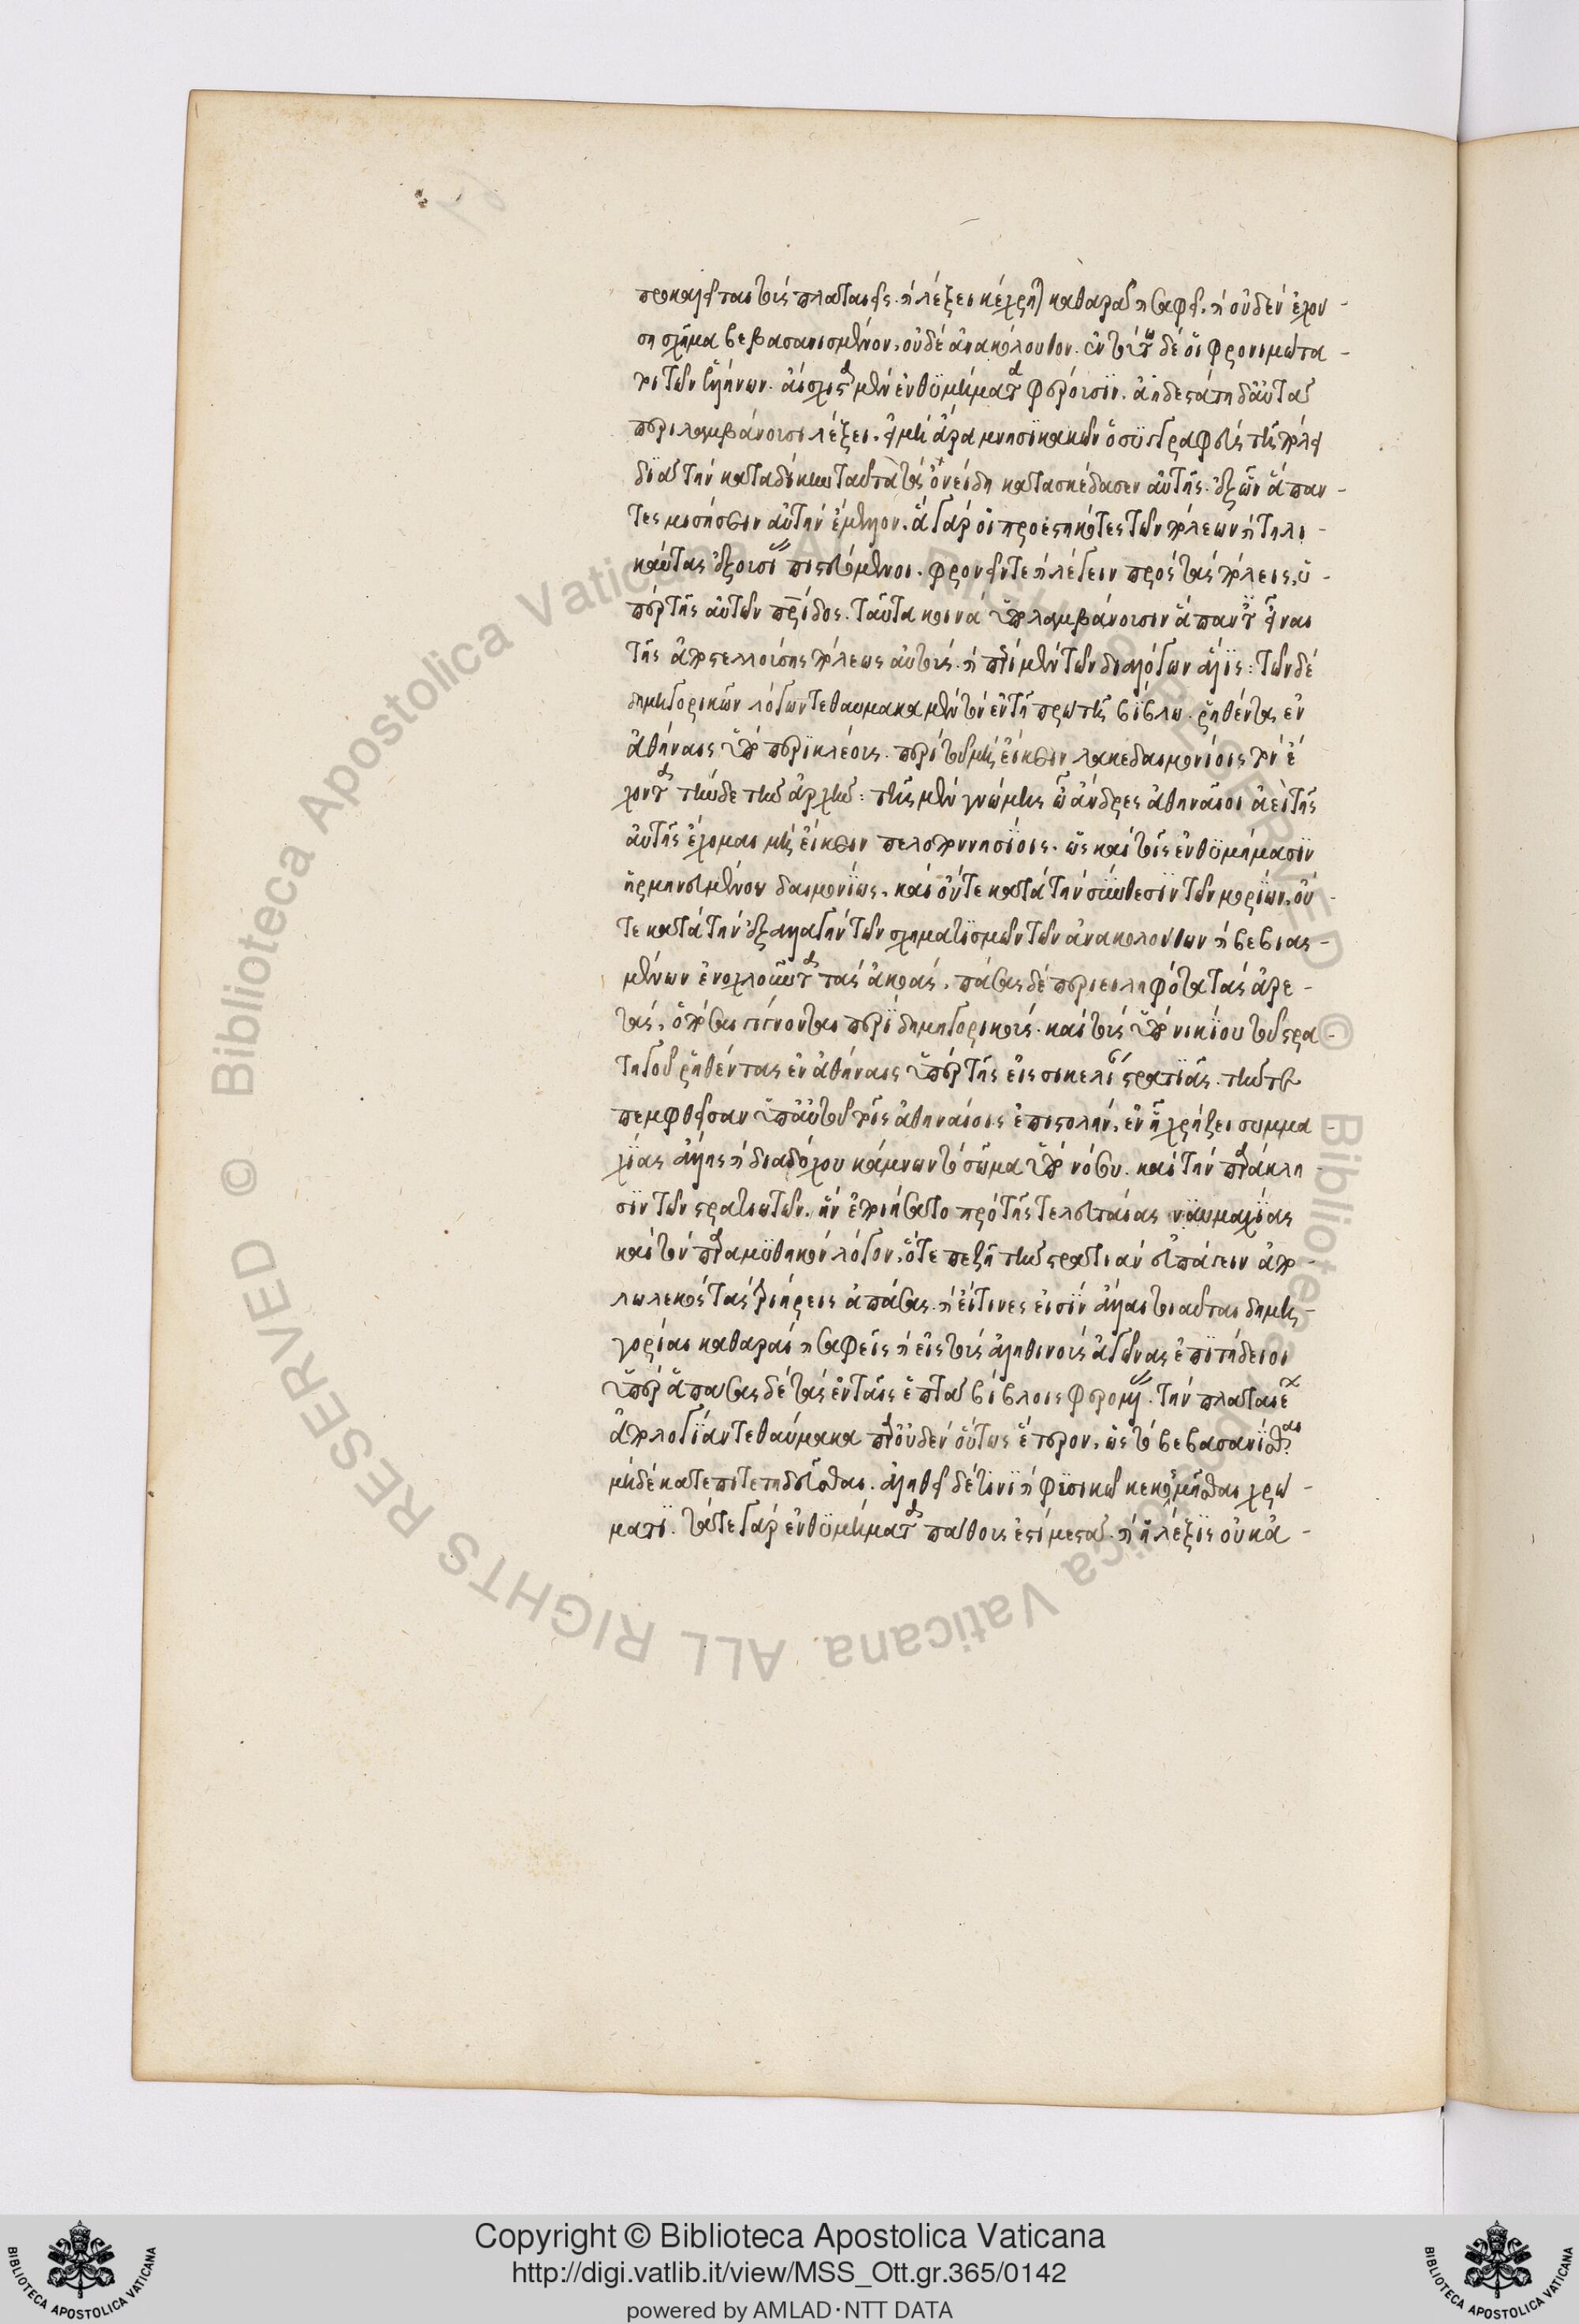 προκαλεῖται τοὺς πλαταιεῖς. καὶ λέξει κέχρηται καθαρᾷ καὶ σαφεῖ. καὶ οὐδὲν ἐχού-
ση σχῆμα βεβασανισμένον, οὐδὲ ἀνακόλουθον. ἐν τούτῳ δὲ οἱ φρονιμώτα-
τοι τῶν ἑλλήνων. αἴσχιστα μὲν ἐνθυμήματα φέρουσιν. ἀηδεστάτῃ δ' αὐτὰ
περιλαμβάνουσι λέξει. εἰ μὴ ἄρα μνησικακῶν ὁ συγγραφεὺς τῇ πόλει
διὰ τὴν καταδίκην ταῦτα τὰ ὀνείδη κατεσκέδασεν αὐτῆς. ἐξ ὧν ἅπαν-
τες μισήσειν αὐτὴν ἔμελλον. ἃ γὰρ οἱ προεστηκότες τῶν πόλεων καὶ τηλι-
καύτας ἐξουσίας πιστευόμενοι. φρονεῖν τε καὶ λέγειν πρὸς τὰς πόλεις, ὑ-
πὲρ τῆς αὐτῶν πατρίδος. ταῦτα κοινὰ ὑπολαμβάνουσιν ἅπαντες εἶναι
τῆς ἀποστελλούσης πόλεως αὐτούς. καὶ περὶ μὲν τῶν διαλόγων ἅλις: τῶν δὲ
δημηγορικῶν λόγων τεθαύμακα μὲν τὸν ἐν τῇ πρώτῃ βίβλῳ. ῥηθέντα ἐν
ἀθήναις ὑπὸ περικλέους. περὶ τοῦ μὴ εἴκειν λακεδαιμονίοις τὸν ἔ-
χοντα τήνδε τὴν ἀρχήν: τῆς μὲν γνώμης ὦ ἄνδρες ἀθηναῖοι ἀεὶ τῆς
αὐτῆς ἔχομαι μὴ εἴκειν πελοποννησίοις. ὡς καὶ τοῖς ἐνθυμήμασιν
ἡρμηνευμένον δαιμονίως. καὶ οὔτε κατὰ τὴν σύνθεσιν τῶν μορίων, οὔ-
τε κατὰ τὴν ἐξαλλαγὴν τῶν σχηματισμῶν τῶν ἀνακολούθων καὶ βεβιασ-
μένων ἐνοχλοῦντα τὰς ἀκοάς. πάσας δὲ περιειληφότα τὰς ἀρε-
τάς, ὁπόσαι γίνονται περὶ δημηγορικούς. καὶ τοὺς ὑπὸ νικίου τοῦ στρα-
τηγοῦ ῥηθέντας ἐν ἀθήναις ὑπὲρ τῆς εἰς σικελίαν στρατιᾶς. τήν τε
πεμφθεῖσαν ὑπ' αὐτοῦ τοῖς ἀθηναίοις ἐπιστολήν, ἐν ᾗ χρήζει συμμα-
χίας ἄλλης καὶ διαδόχου κάμνων τὸ σῶμα ὑπὸ νόσου. καὶ τὴν παράκλη-
σιν τῶν στρατιωτῶν. ἣν ἐποιήσατο πρὸ τῆς τελευταίας ναυμαχίας
καὶ τὸν παραμυθητικὸν λόγον, ὅτε πεζῇ τὴν στρατιὰν ἀπάγειν ἀπο-
λωλεκὼς τὰς τριήρεις ἁπάσας. καὶ εἴ τινες εἰσὶν ἄλλαι τοιαῦται δημη-
γορίαι καθαραὶ καὶ σαφεῖς καὶ εἰς τοὺς ἀληθινοὺς ἀγῶνας ἐπιτήδειοι
ὑπὲρ ἁπάσας δὲ τὰς ἐν ταῖς ἑπτὰ βίβλοις φερομένας. τὴν πλαταιέων
ἀπολογίαν τεθαύμακα παρ' οὐδὲν οὕτως ἕτερον, ὡς τὸ βεβασανίσθαι
μηδὲ κατεπιτετηδεῦσθαι. ἀληθεῖ δέ τινι καὶ φυσικῷ κεκοσμῆσθαι χρώ-
ματι. τά τε γὰρ ἐνθυμήματα πάθους ἐστὶ μεστά. καὶ ἡ λέξις οὐκ ἀ-
Copyright © Biblioteca Apostolica Vaticana
http://digi.vatlib.it/view/MSS_Ott.gr.365/0142
powered by AMLAD·NTT DATA